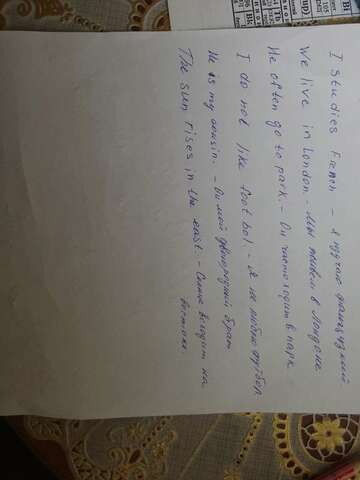 I Studies French - я изучаю французский
We live in London. - Мы живём в Лондоне
He often go to park. - Он часто ходит в парк
I do not like football. - Я не люблю футбол
He is my cousin. - Он мой двоюродный брат
The sun rises in the east. - Солнце восходит на
востоке.